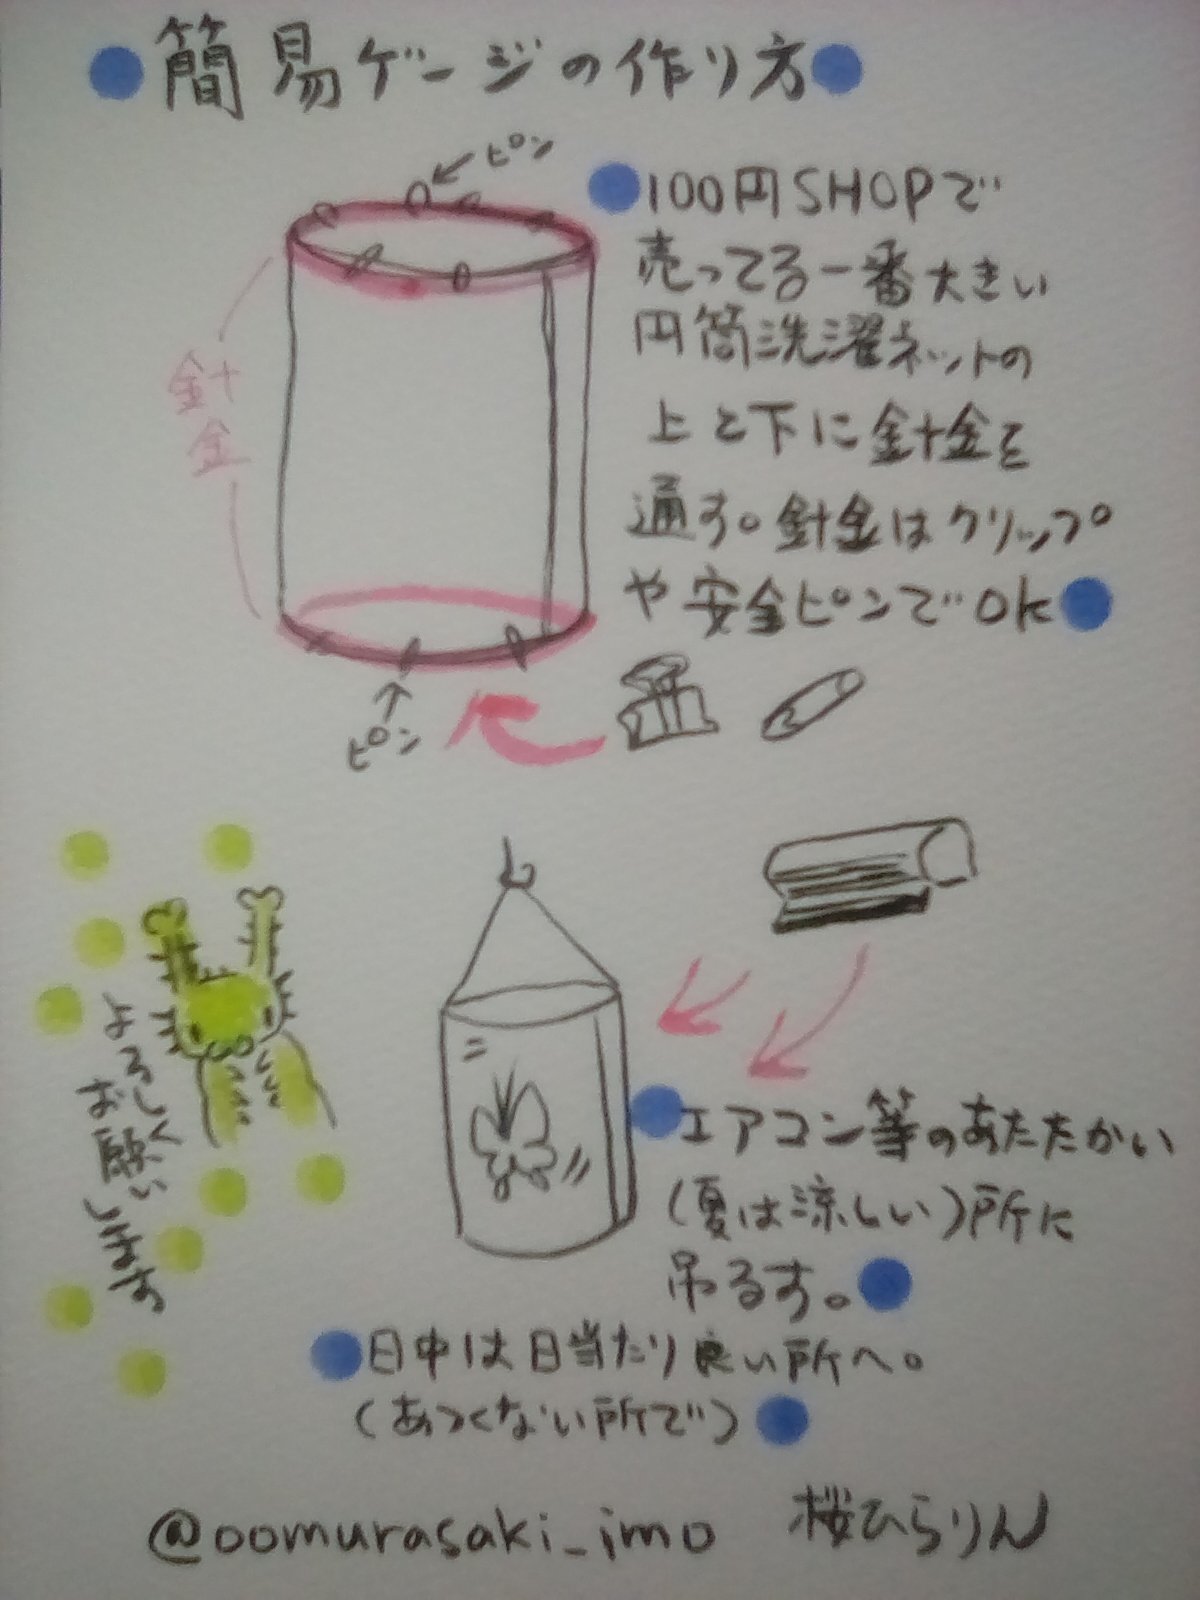 簡易ゲージの作り方
ピン
100円SHOPで
売ってる一番大きい
円筒洗濯ネットの
上と下に針金を
通す。針金はクリップ
や安全ピンでOK
針金
ピン
よろしく
お願い
します
エアコン等のあたたかい
(夏は涼しい)所に
吊るす。
日中は日当たり良い所へ。
(あつくない所で)
@oomurasaki_imo 桜ひらりん